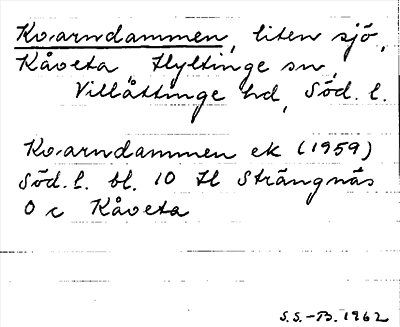 Kvarndammen, liten sjö,
Kåveta Hyltinge sn,
Villåttinge hd, Söd. l.
Kvarndammen ek (1959)
Söd. l. bl. 10 Il Strängnäs
O c Kåveta
S.S.-B. 1962